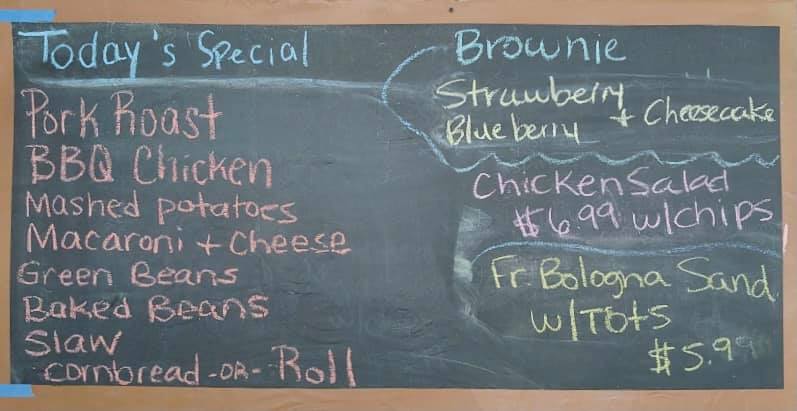 Today's Special
Pork Roast
BBQ Chicken
Mashed potatoes
Macaroni + Cheese
Green Beans
Baked Beans
Slaw
cornbread -OR- Roll
Brownie
Strawberry
Blueberry + Cheesecake
Chicken Salad
$6.99 w/chips
Fr Bologna Sand
w/Tots
$5.99